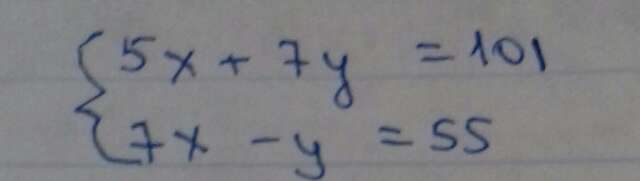 5x + 7y = 101
7x - y = 55